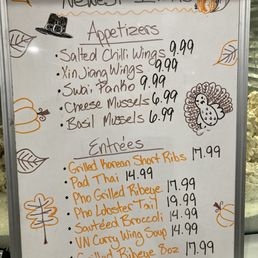 Newest Items
Appetizers
• Salted Chilli Wings 9.99
• XinJiang Wings 9.99
• Swai Panko 9.99
• Cheese Mussels 6.99
• Basil Mussels 6.99
Entrées
• Grilled Korean Short Ribs 17.99
• Pad Thai 14.99
• Pho Grilled Ribeye 17.99
• Pho Lobster Tail 19.99
• Sautéed Broccoli 14.99
• VN Curry Wing Soup 14.99
• Grilled Ribeye 8oz 17.99